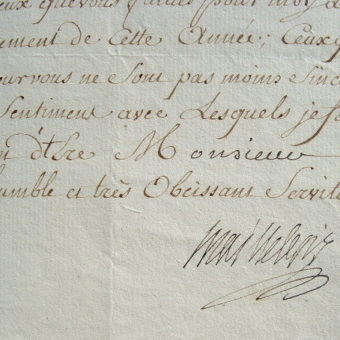 eux que vous faites pour moy a
ement de Cette Année; Ceux
pour vous ne sont pas moins Sinc
Sentiment avec Lesquels je s
n d'tre Monsieur
humble et très Obeissant Servite